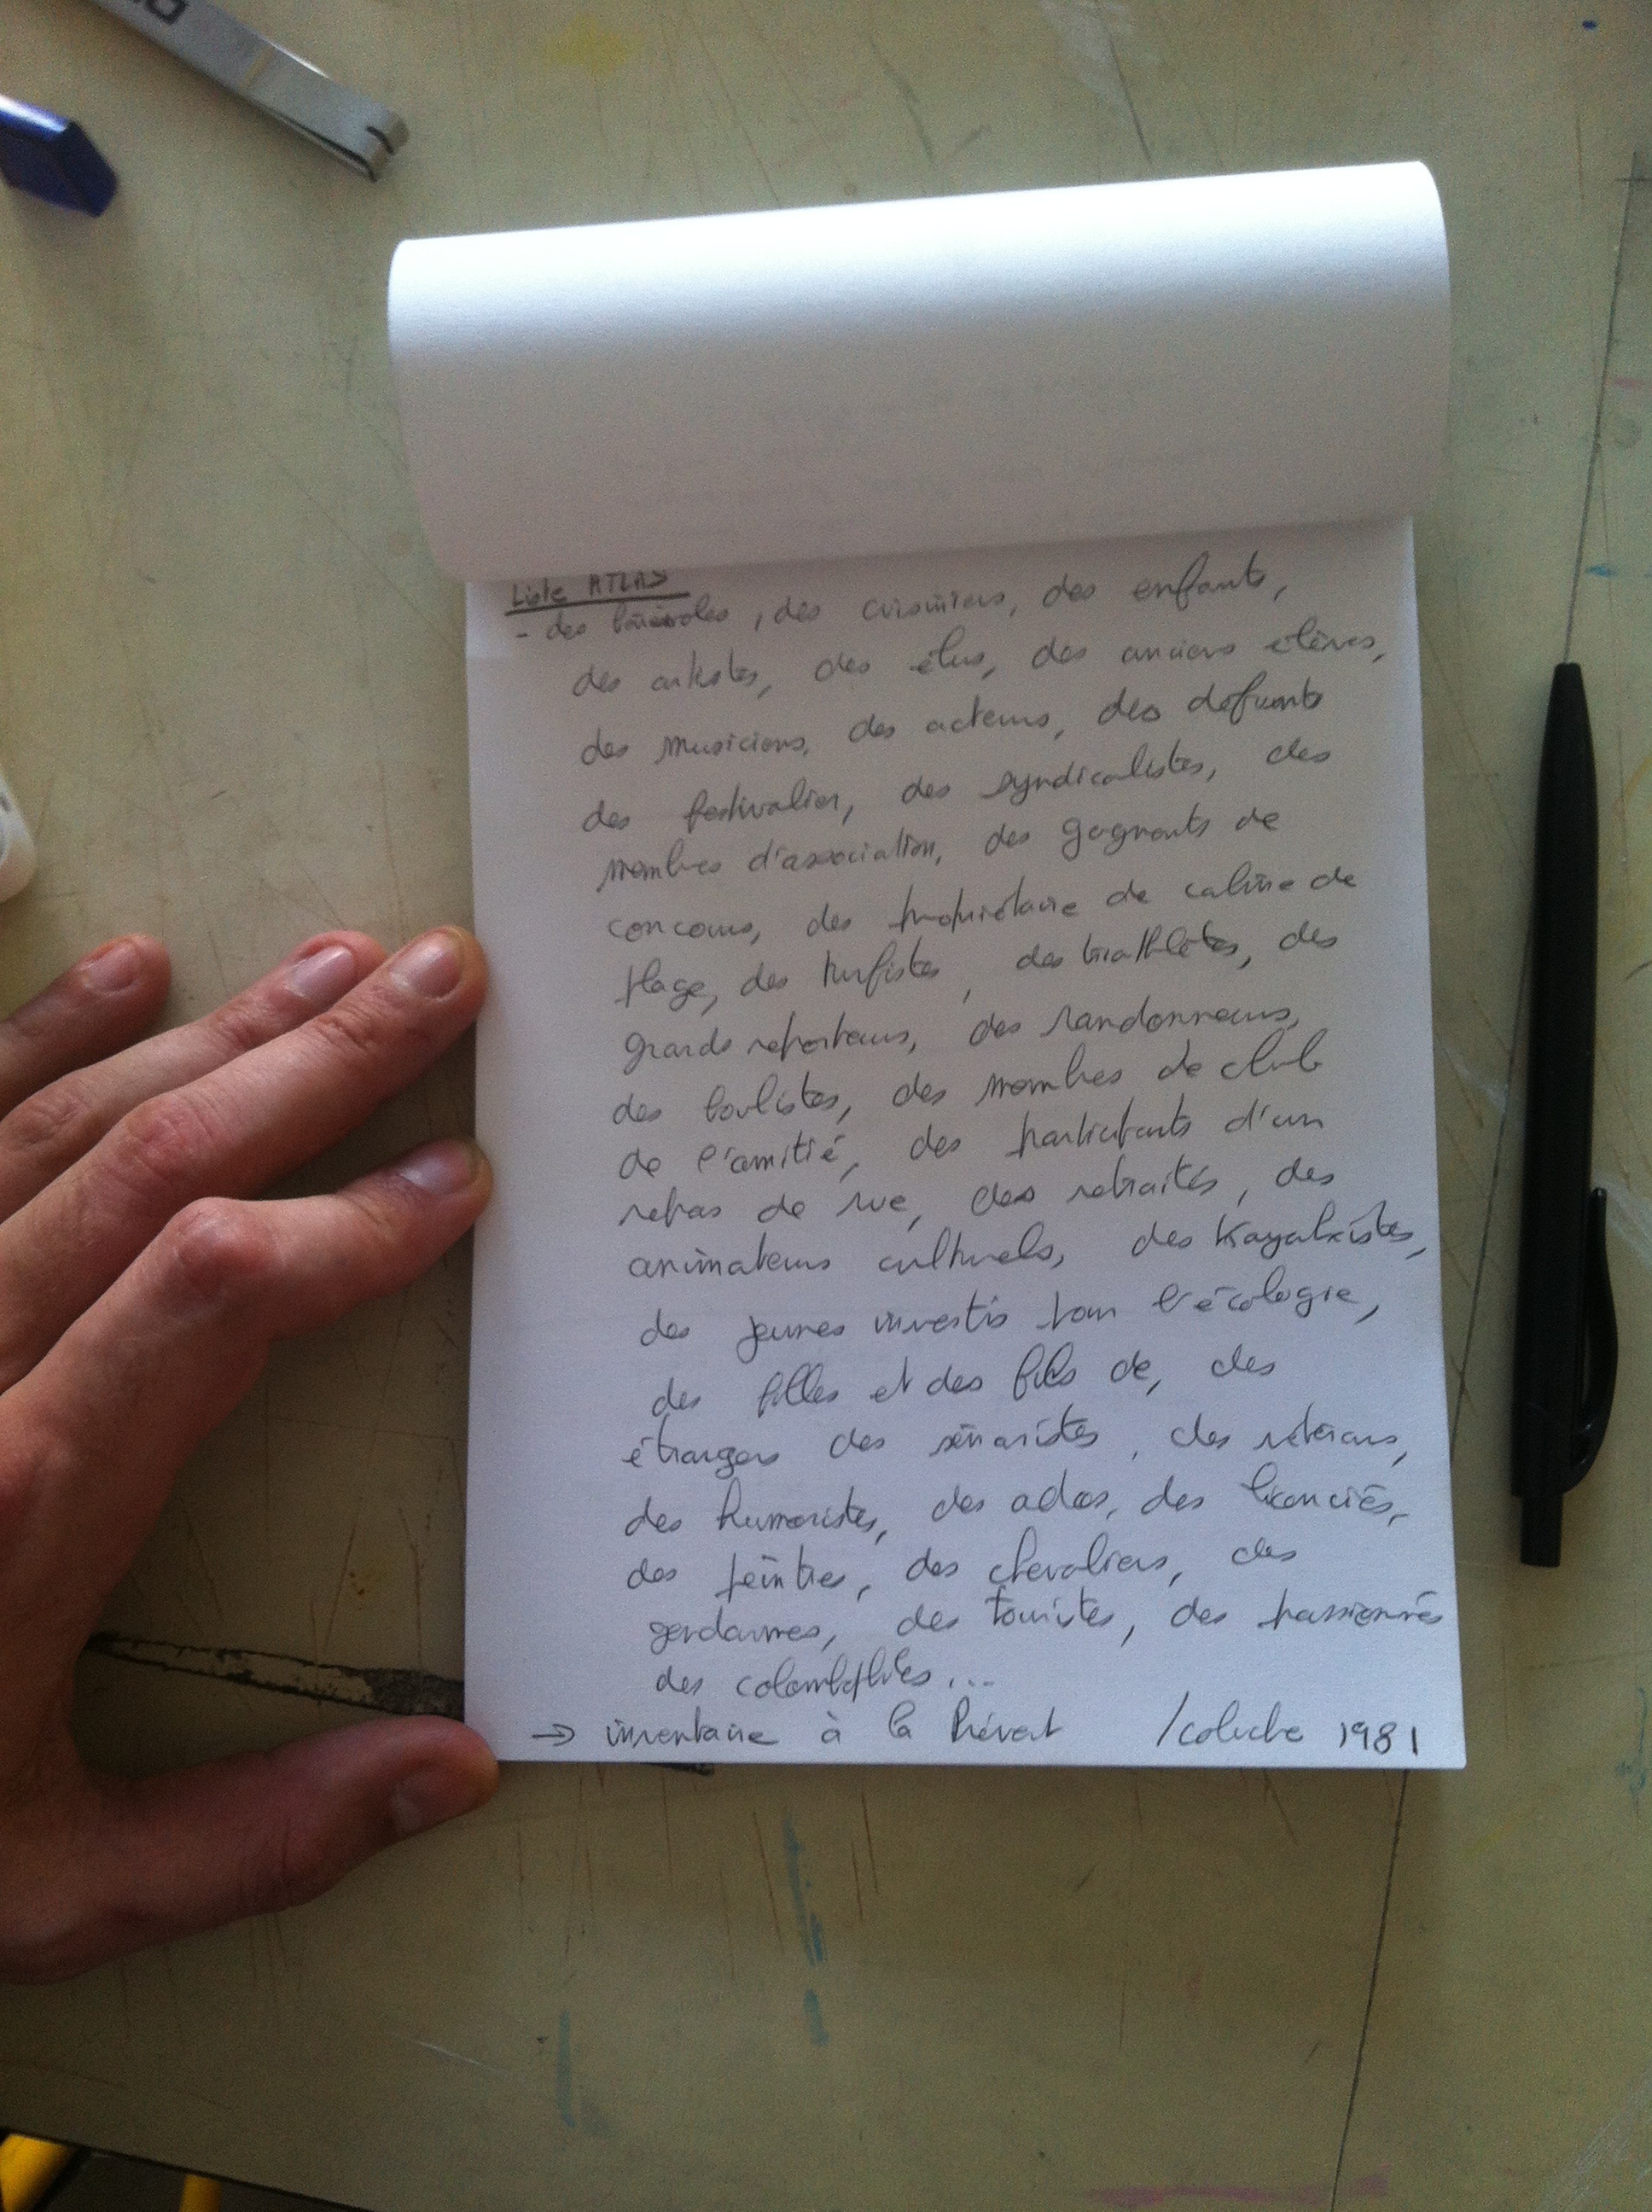 Liste ATLAS
- des bénévoles, des cuisiniers, des enfants,
des artistes, des élus, des anciens élèves,
des musiciens, des acteurs, des defunts
des festivalier, des syndicalistes, des
membres d'association, des gagnants de
concours, des propriétaire de cabine de
plage, des turfistes, des triathlètes, des
grands reporteurs, des randonneurs,
des boulistes, des membres de club
de l'amitié, des participants d'un
repas de rue, des retraités, des
animateurs culturels, des kayakistes,
des jeunes investis pour l'écologie,
des filles et des fils de, des
étrangers des sénaristes, des vétérans,
des humoristes, des ados, des licenciés,
des peintres, des chevaliers, des
gendarmes, des touristes, des passionnés
des colombophiles...
→ inventaire à la Prévert /coluche 1981